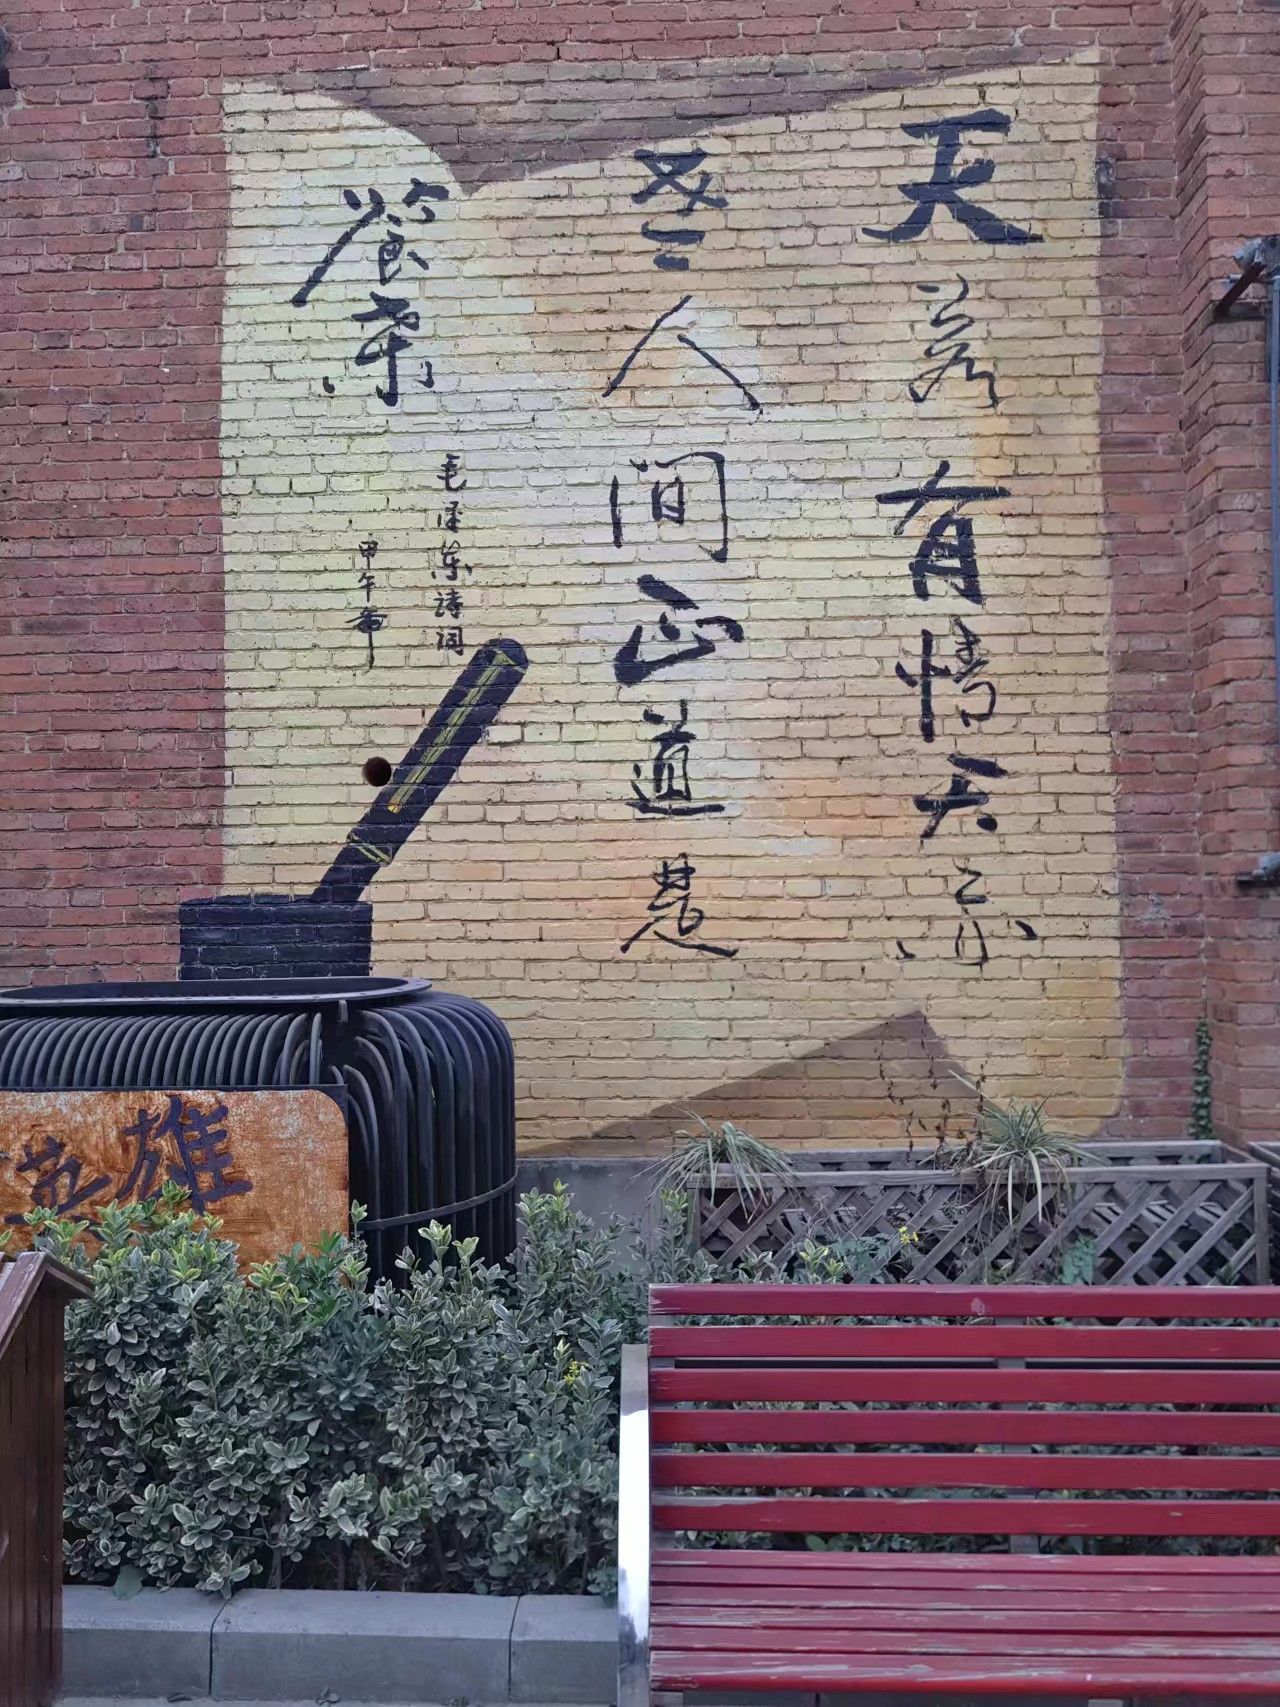 天若有情天亦
老人间正道是
蒼桑
毛泽东詩词
甲午
英雄